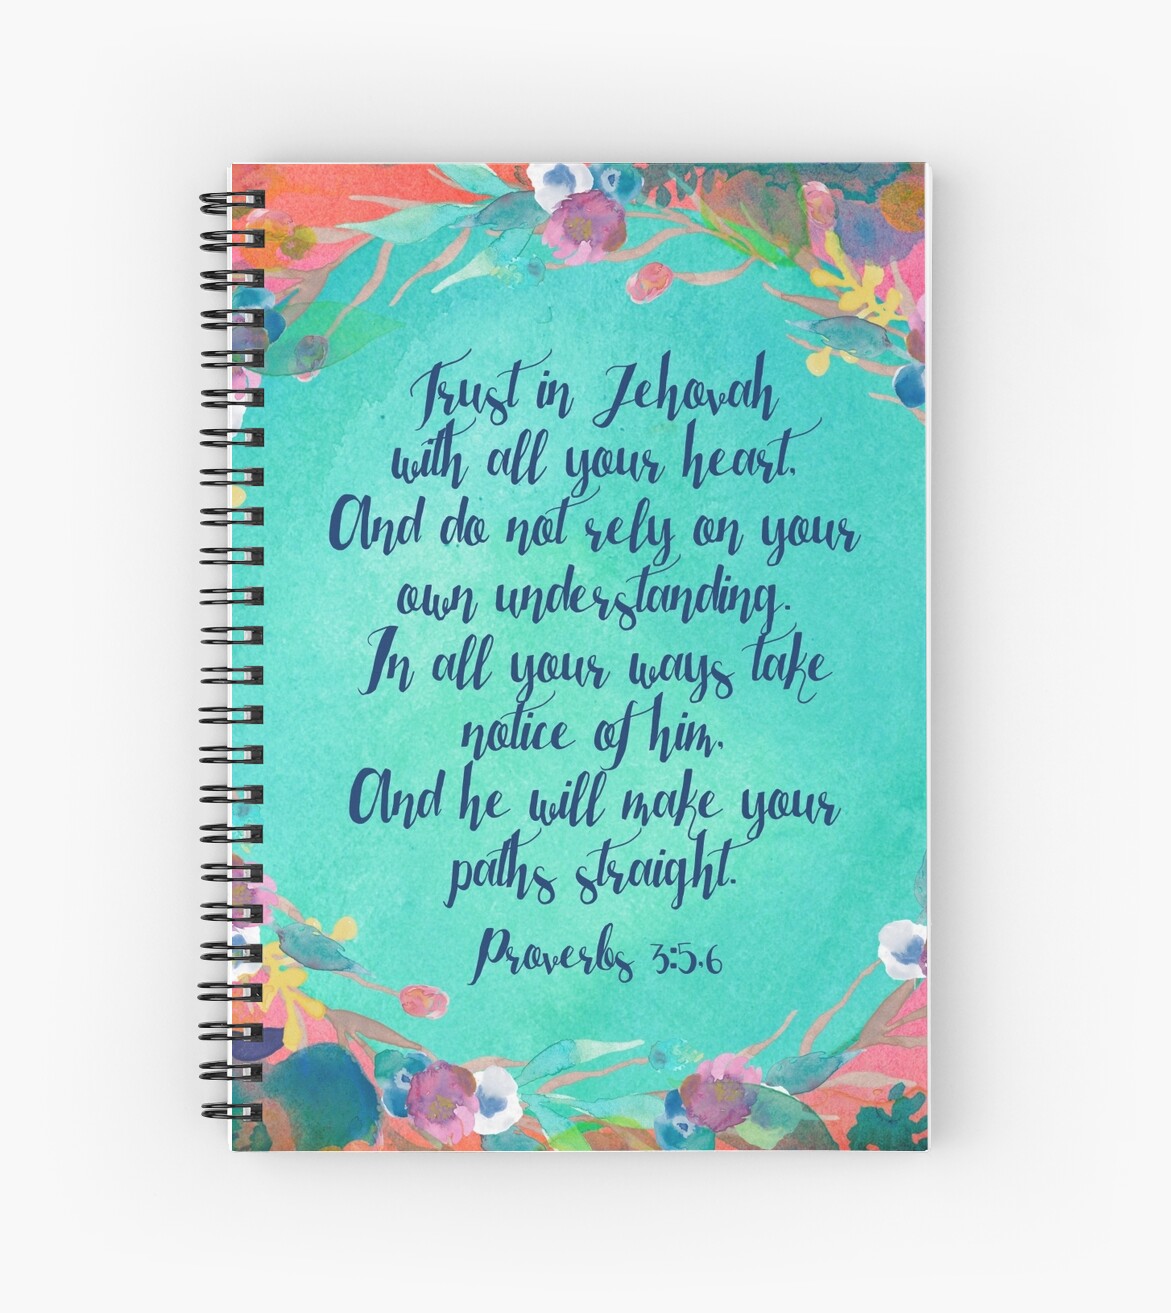 Trust in Jehovah
with all your heart,
And do not rely on your
own understanding.
In all your ways take
notice of him,
And he will make your
paths straight.
Proverbs 3:5,6